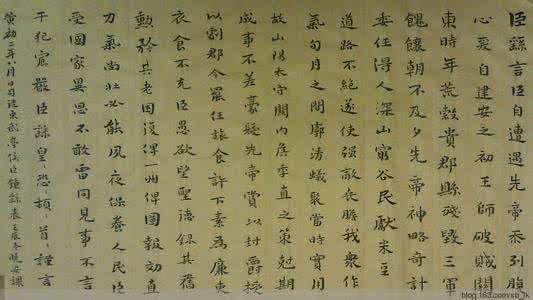 臣繇言臣自遭遇先帝忝列腹
心爰自建安之初王師破賊關
東時年荒穀貴郡縣殘毀三軍
餽饟朝不及夕先帝神略奇計
委任得人深山窮谷民獻米豆
道路不絕遂使強敵喪膽我眾作
氣旬月之間廓清蟻聚當時實用
故山陽太守關內侯季直之策剋期
成事不差豪髮先帝賞以封爵授
以劇郡今罷任旅食許下素為廉吏
衣食不充臣愚欲望聖德錄其舊
勳矜其老困復俾一州俾圖報效直
力氣尚壯必能夙夜保養人民臣
受國家異恩不敢雷同見事不言
干犯宸嚴臣繇皇、恐、頓、首、謹言
黃初二年八月日司徒東武亭侯臣鍾繇表
blog.163.com